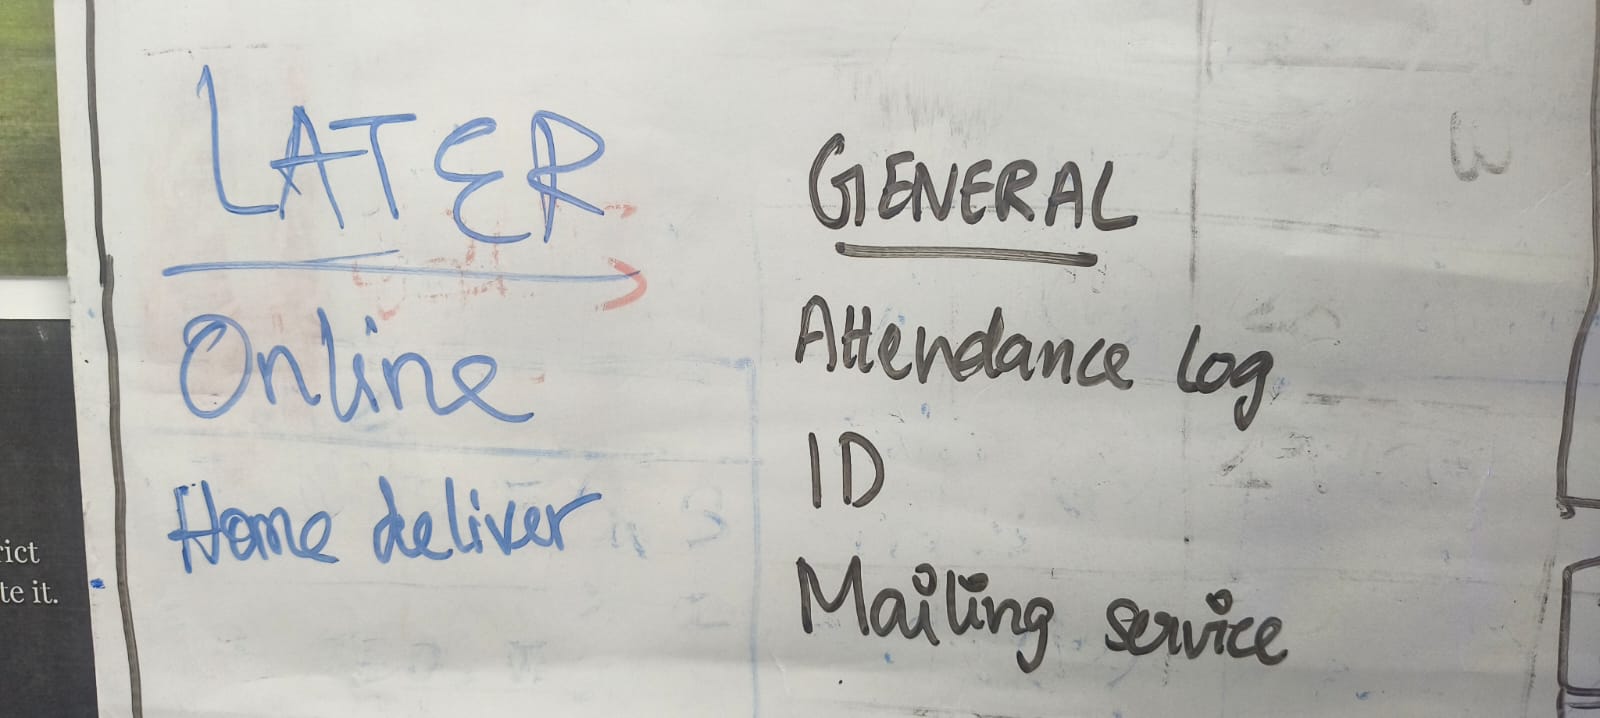 LATER
Online
Home deliver
GENERAL
Attendance log
ID
Mailing service
te it.